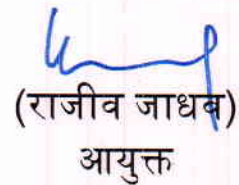 (राजीव जाधव)
आयुक्त